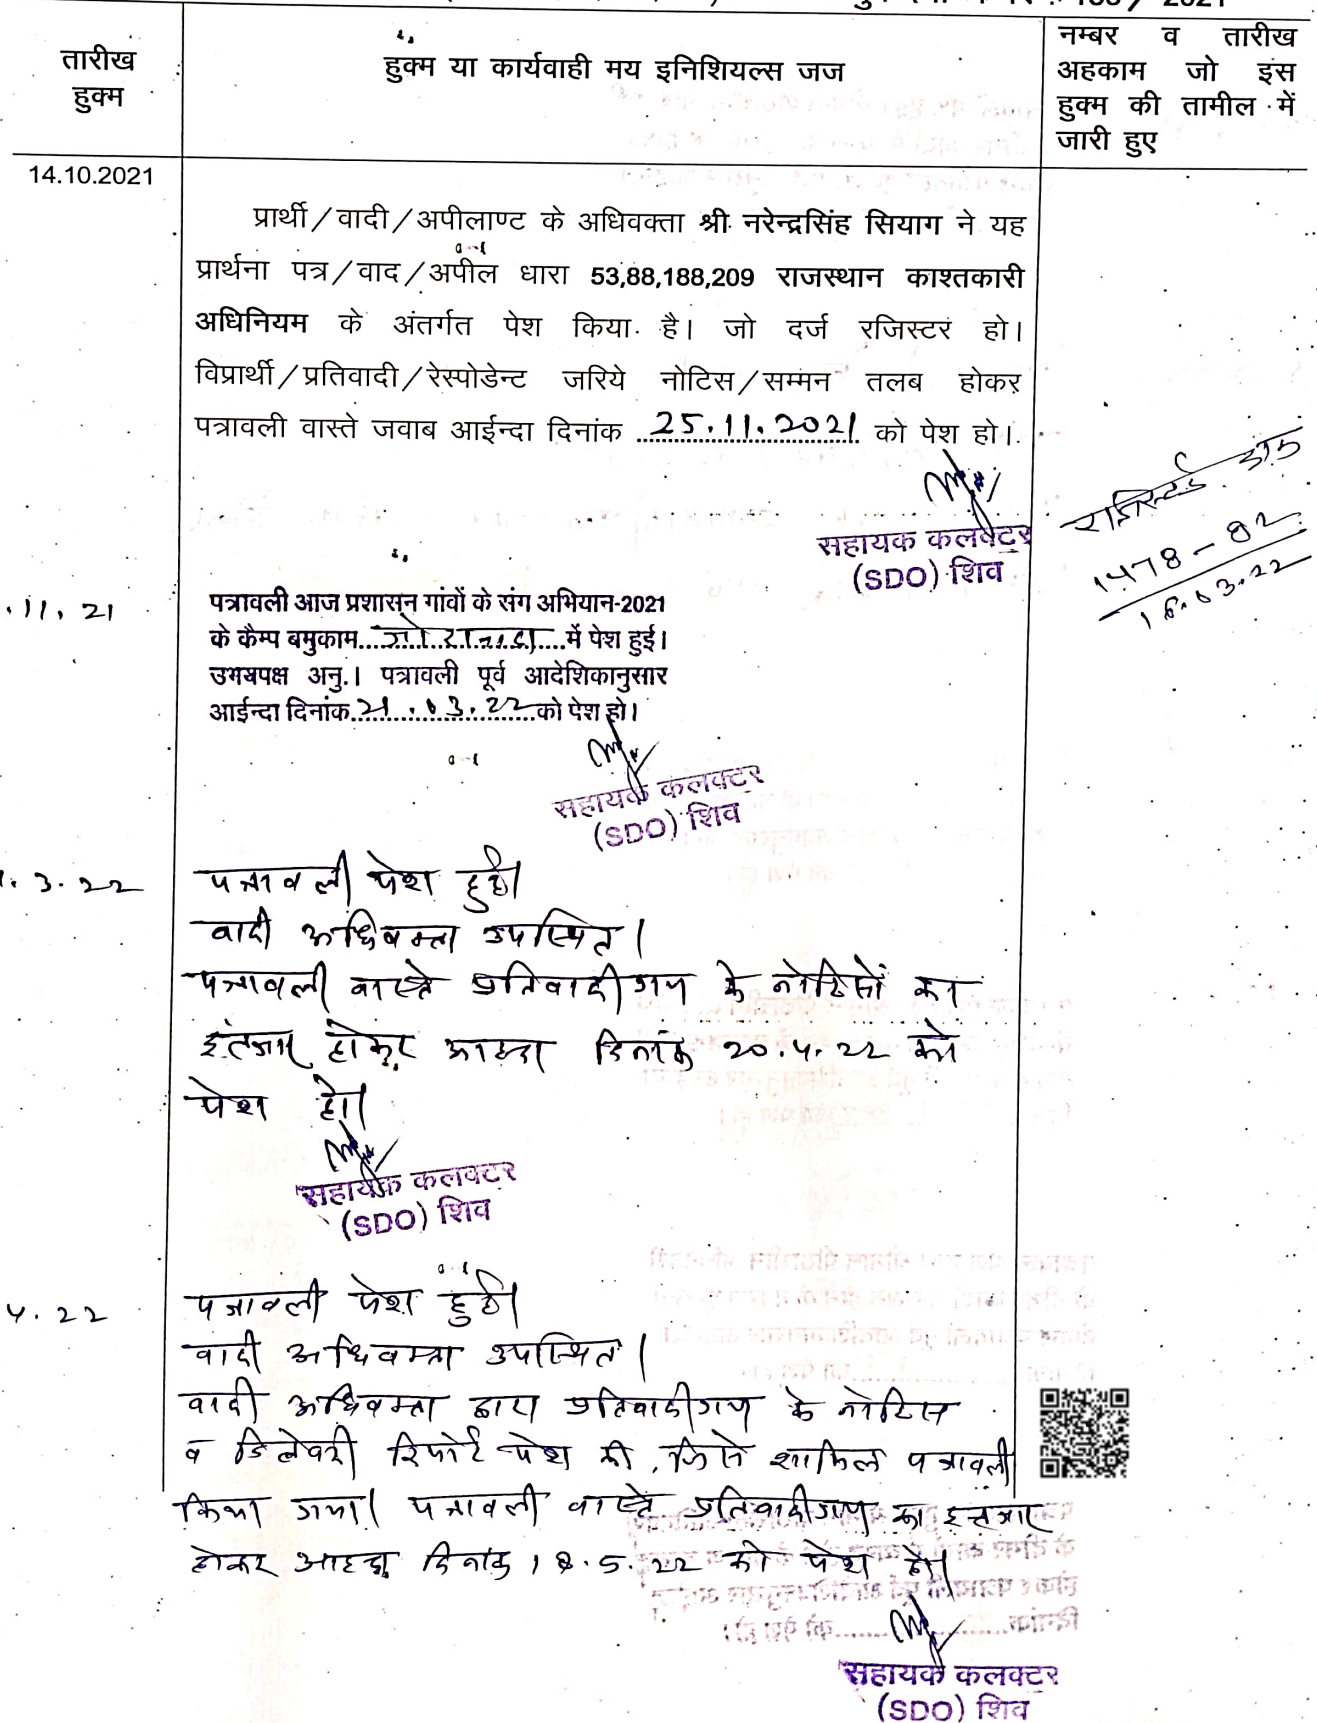 तारीख
हुक्म
हुक्म या कार्यवाही मय इनिशियल्स जज
नम्बर व तारीख
अहकाम जो इस
हुक्म की तामील में
जारी हुए
14.10.2021
प्रार्थी/वादी/अपीलाण्ट के अधिवक्ता श्री नरेन्द्रसिंह सियाग ने यह
प्रार्थना पत्र/वाद/अपील धारा 53,88,188,209 राजस्थान काश्तकारी
अधिनियम के अंतर्गत पेश किया है। जो दर्ज रजिस्टर हो।
विप्रार्थी/प्रतिवादी/रेस्पोडेन्ट जरिये नोटिस/सम्मन तलब होकर
पत्रावली वास्ते जवाब आईन्दा दिनांक 25.11.2021 को पेश हो।
सहायक कलक्टर
(SDO) शिव
रजिस्टर्ड डाक
1478-82
.03.22
.11.21
पत्रावली आज प्रशासन गांवों के संग अभियान-2021
के कैम्प बमुकाम में पेश हुई।
उभयपक्ष अनु.। पत्रावली पूर्व आदेशिकानुसार
आईन्दा दिनांक 21.03.22 को पेश हो।
सहायक कलक्टर
(SDO) शिव
.3.22
पत्रावली पेश हुई।
वादी अधिवक्ता उपस्थित।
पत्रावली वास्ते प्रतिवादीगण के नोटिसों का
इंतजार होकर आइन्दा दिनांक 20.4.22 को
पेश हो।
सहायक कलक्टर
(SDO) शिव
4.22
पत्रावली पेश हुई।
वादी अधिवक्ता उपस्थित।
वादी अधिवक्ता द्वारा प्रतिवादीगण के नोटिस
व डिलेवरी रिपोर्ट पेश की, जिसे शामिल पत्रावली
किया गया। पत्रावली वास्ते प्रतिवादीगण का इन्तजार
होकर आइन्दा दिनांक 18.5.22 को पेश हो।
सहायक कलक्टर
(SDO) शिव